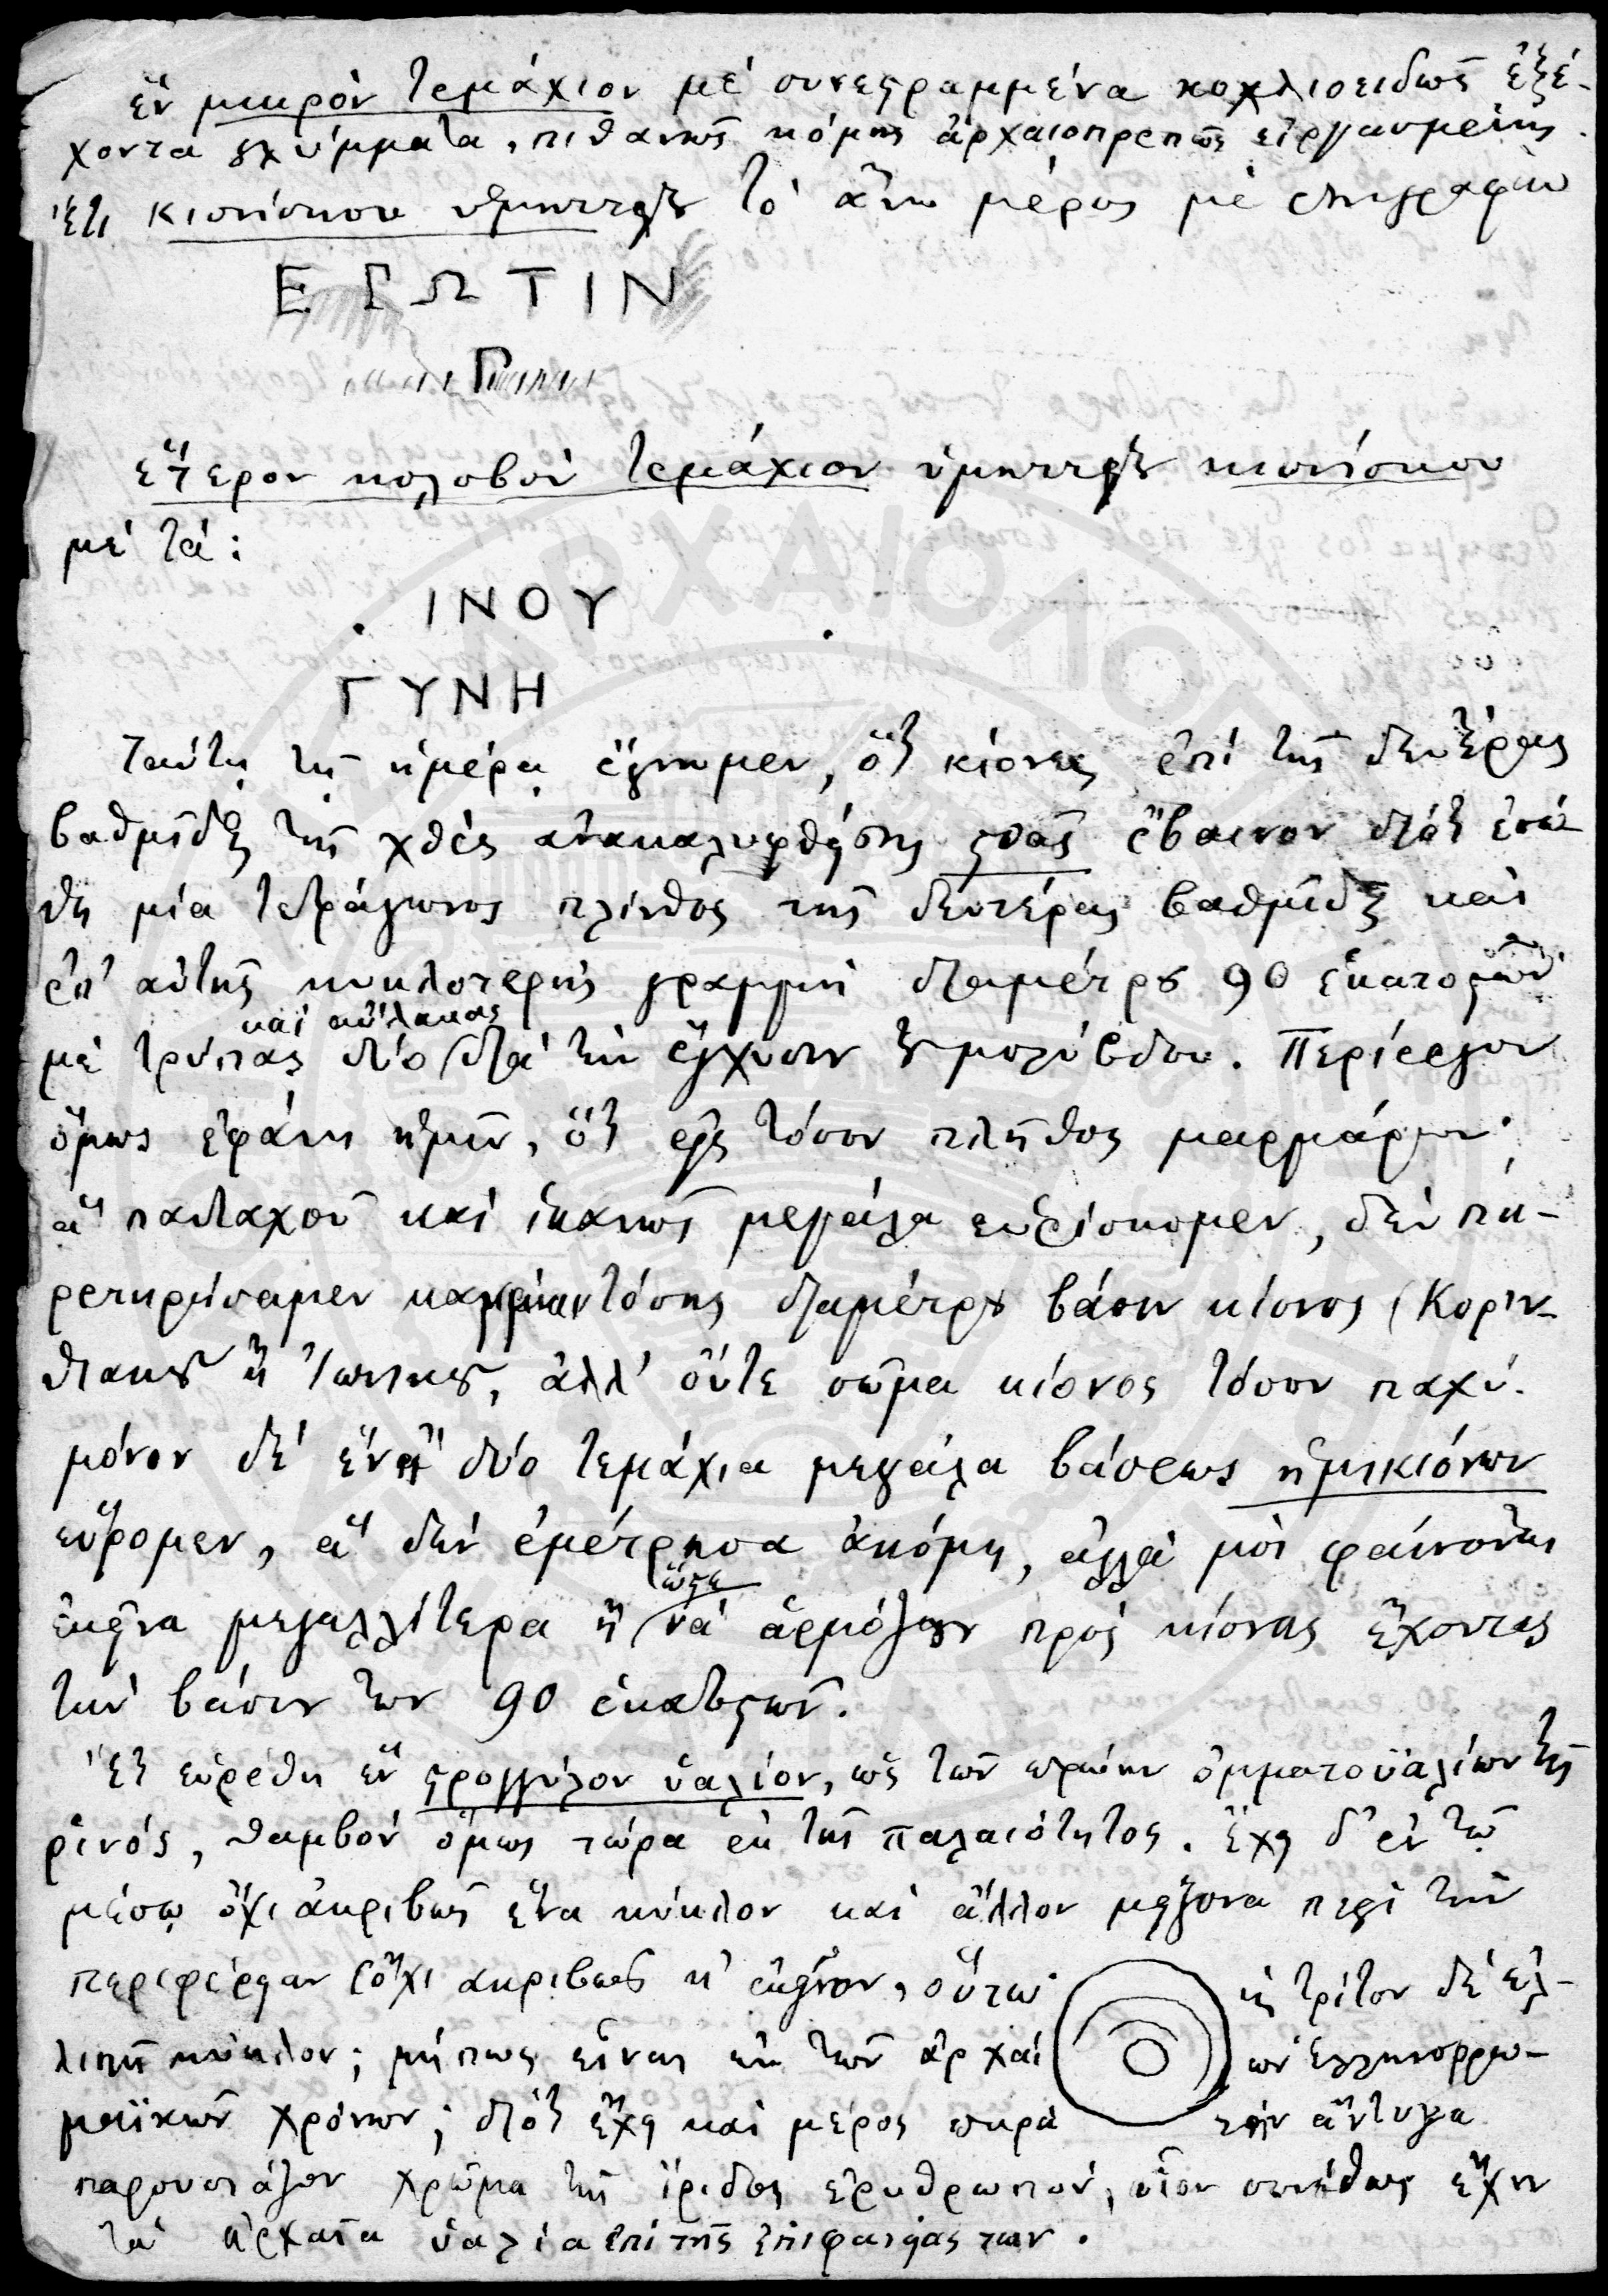 ἓν μικρὸν τεμάχιον μὲ συνεστραμμένα κοχλιοειδῶς ἐξέ-
χοντα γλύμματα, πιθανῶς κόμης ἀρχαιοπρεπῶς εἰργασμένης.
Ἔτι κιονίσκου ὑμηττείου τὸ ἄνω μέρος μὲ ἐπιγραφὴν
Ε Γ Ω Τ Ι Ν
Γ
ἕτερον κολοβὸν τεμάχιον ὑμηττείου κιονίσκου
μὲ τά:
. ΙΝΟΥ .
ΓΥΝΗ
Ταύτῃ τῇ ἡμέρᾳ ἔγνωμεν, ὅτι κίονες ἐπὶ τῆς δευτέρας
βαθμῖδος τῆς χθὲς ἀνακαλυφθείσης στοᾶς ἔβαινον διότι ἐφά-
νη μία τετράγωνος πλίνθος τῆς δευτέρας βαθμῖδος καὶ
ἐπ' αὐτῆς κυκλοτερὴς γραμμὴ διαμέτρου 90 ἑκατοστῶν
καὶ αὔλακας
μὲ τρύπας δύο διὰ τὴν ἔγχυσιν τοῦ μολύβδου. Περίεργον
ὅμως ἐφάνη ἡμῖν, ὅτι εἰς τόσον πλῆθος μαρμάρων,
ἃ πανταχοῦ καὶ ἱκανῶς μεγάλα εὑρίσκομεν, δὲν πα-
ρετηρήσαμεν καμμίαν τόσης διαμέτρου βάσιν κίονος (Κοριν-
θιακοῦ ἢ Ἰωνικοῦ, ἀλλ' οὔτε σῶμα κίονος τόσον παχύ.
μόνον δὲ ἓν ἢ δύο τεμάχια μεγάλα βάσεως ἡμικιόνων
εὕρομεν, ἃ δὲν ἐμέτρησα ἀκόμη, ἀλλὰ μοὶ φαίνονται
ὥστε
ἐκεῖνα μεγαλλίτερα ἢ νὰ ἁρμόζουν πρὸς κίονας ἔχοντας
τὴν βάσιν των 90 ἑκατοστῶν.
Ἔτι εὑρέθη ἓν στρογγύλον ὑαλίον, ὡς τῶν πρώην ὀμματοϋαλίων τῆς
ῥινός, θαμβὸν ὅμως τώρα ἐκ τῆς παλαιότητος. Ἔχει δ' ἐν τῷ
μέσῳ ὄχι ἀκριβῶς ἕνα κύκλον καὶ ἄλλον μείζονα περὶ τὴν
περιφέρειαν (ὄχι ἀκριβῶς κ' ἐκεῖνον, οὕτω κ τρίτον δὲ ἐλ-
λιπῆ κύκλον; μήπως εἶναι ἐκ τῶν ἀρχαίων ἑλληνορρω-
μαϊκῶν χρόνων; διότι ἔχει καὶ μέρος παρὰ τὴν ἄντυγα
παρουσιάζον χρῶμα τῆς ἴριδος ἐρυθρωπόν, οἷον συνήθως ἔχουν
τὰ ἀρχαῖα ὑαλία ἐπὶ τῆς ἐπιφανείας των.